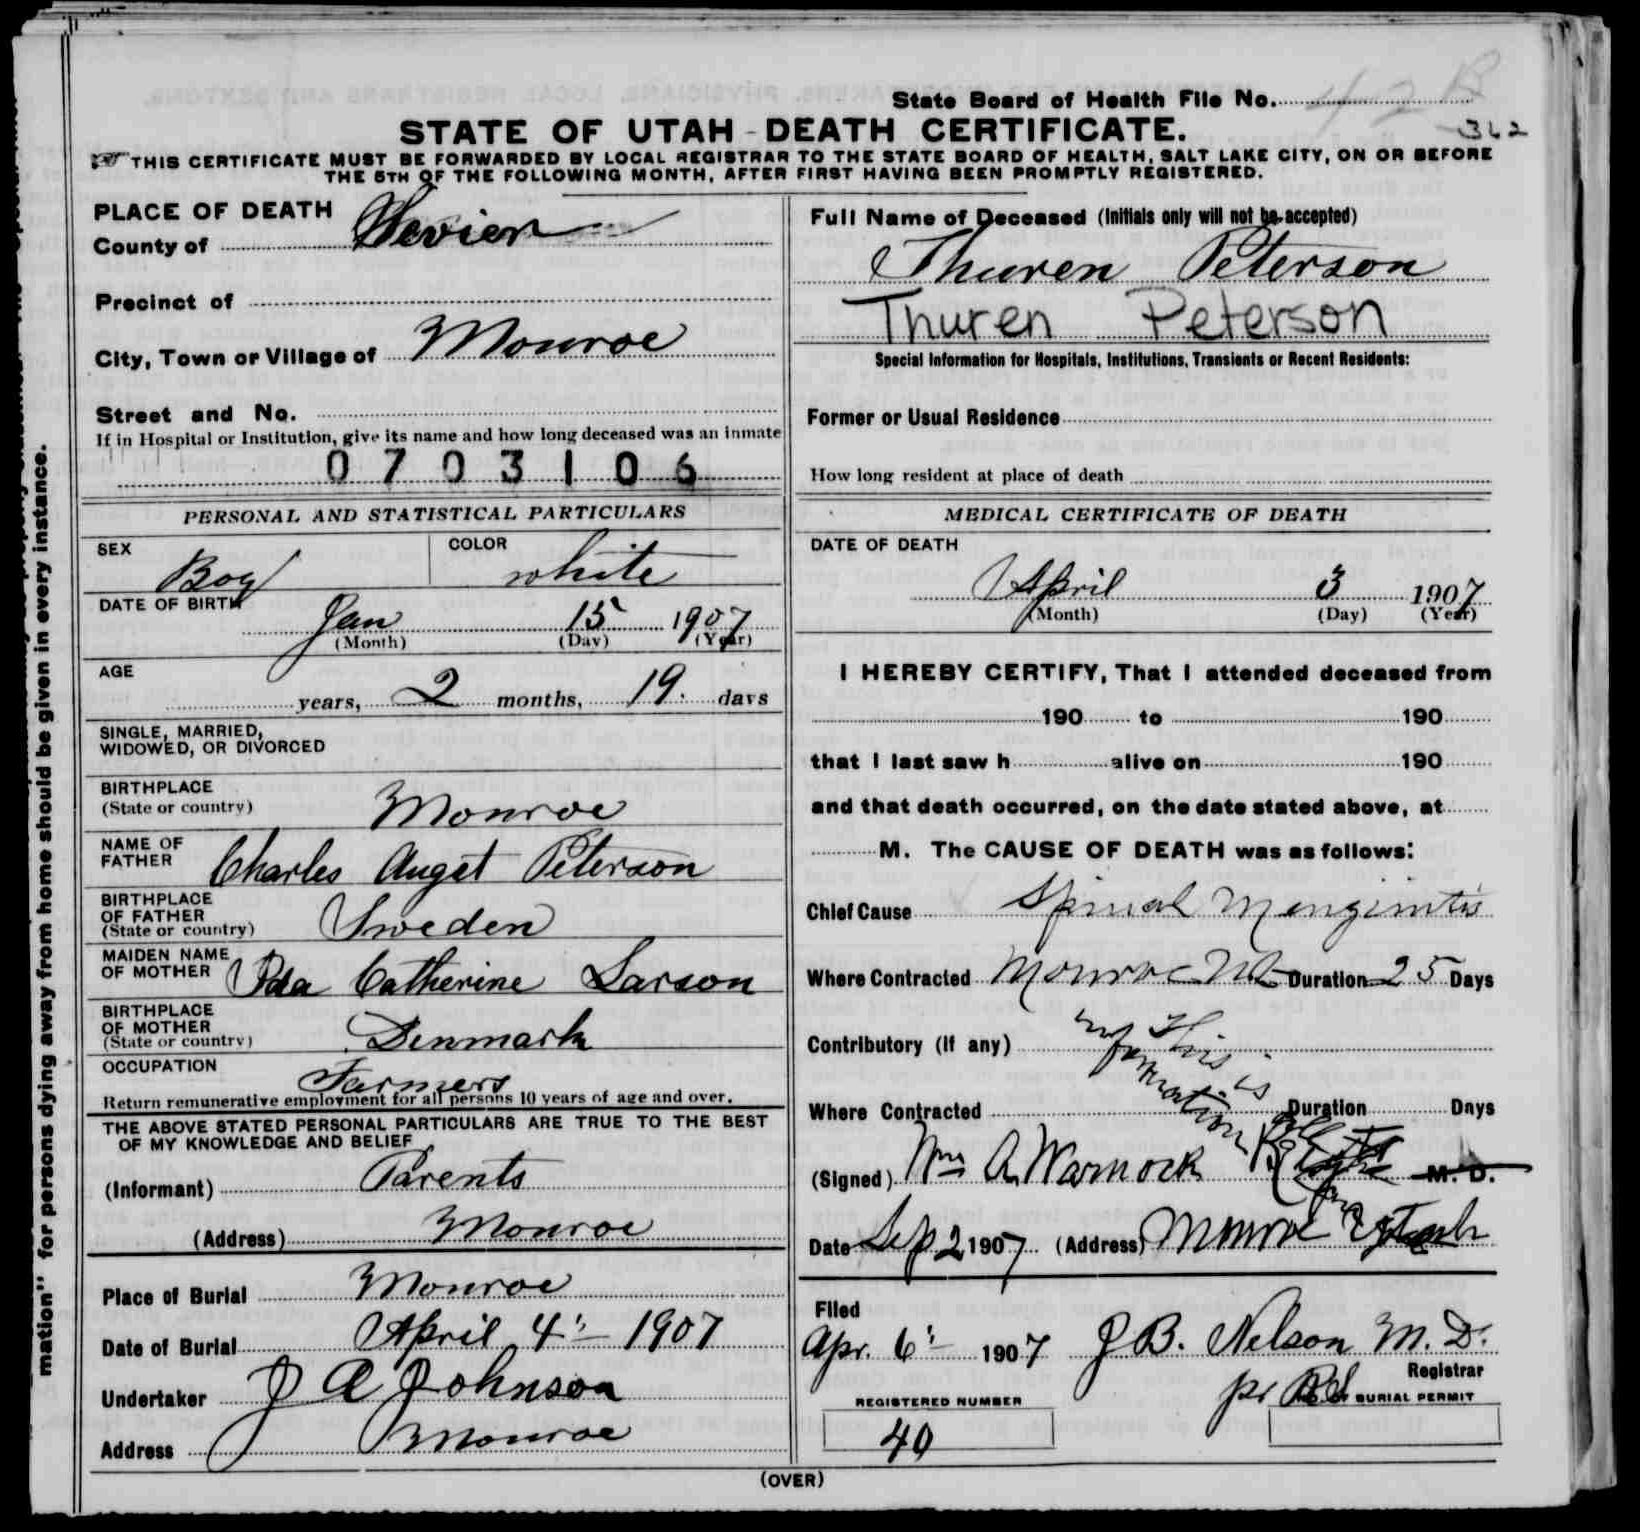 mation" for persons dying away from home should be given in every instance.
State Board of Health File No. 42 B
362
STATE OF UTAH - DEATH CERTIFICATE.
THIS CERTIFICATE MUST BE FORWARDED BY LOCAL REGISTRAR TO THE STATE BOARD OF HEALTH, SALT LAKE CITY, ON OR BEFORE
THE 5TH OF THE FOLLOWING MONTH, AFTER FIRST HAVING BEEN PROMPTLY REGISTERED.
PLACE OF DEATH
County of Sevier
Precinct of
City, Town or Village of Monroe
Street and No.
If in Hospital or Institution, give its name and how long deceased was an inmate
0703106
PERSONAL AND STATISTICAL PARTICULARS
SEX Boy COLOR white
DATE OF BIRTH
Jan 15 1907
(Month) (Day) (Year)
AGE
years, 2 months, 19. days
SINGLE, MARRIED,
WIDOWED, OR DIVORCED
BIRTHPLACE
(State or country) Monroe
NAME OF
FATHER Charles Augst Peterson
BIRTHPLACE
OF FATHER
(State or country) Sweden
MAIDEN NAME
OF MOTHER Ida Catherine Larson
BIRTHPLACE
OF MOTHER
(State or country) Denmark
OCCUPATION
Farmers
Return remunerative employment for all persons 10 years of age and over.
THE ABOVE STATED PERSONAL PARTICULARS ARE TRUE TO THE BEST
OF MY KNOWLEDGE AND BELIEF
(Informant) Parents
(Address) Monroe
Place of Burial Monroe
Date of Burial April 4 1907
Undertaker J A Johnson
Address Monroe
Full Name of Deceased (Initials only will not be accepted)
Thuren Peterson
Thuren Peterson
Special Information for Hospitals, Institutions, Transients or Recent Residents:
Former or Usual Residence
How long resident at place of death
MEDICAL CERTIFICATE OF DEATH
DATE OF DEATH
April 3 1907
(Month) (Day) (Year)
I HEREBY CERTIFY, That I attended deceased from
190 to 190
that I last saw h alive on 190
and that death occurred, on the date stated above, at
M. The CAUSE OF DEATH was as follows:
Chief Cause Spinal Menginitis
Where Contracted Monroe Ut Duration 25 Days
Contributory (if any)
This is
information
Where Contracted Duration Days
(Signed) Wm A Warnock M. D.
Date Sep 2 1907 (Address) Monroe Utah
Filed
Apr. 6 1907 J B. Nelson M. D.
Registrar
pr
REGISTERED NUMBER BURIAL PERMIT
40
(OVER)